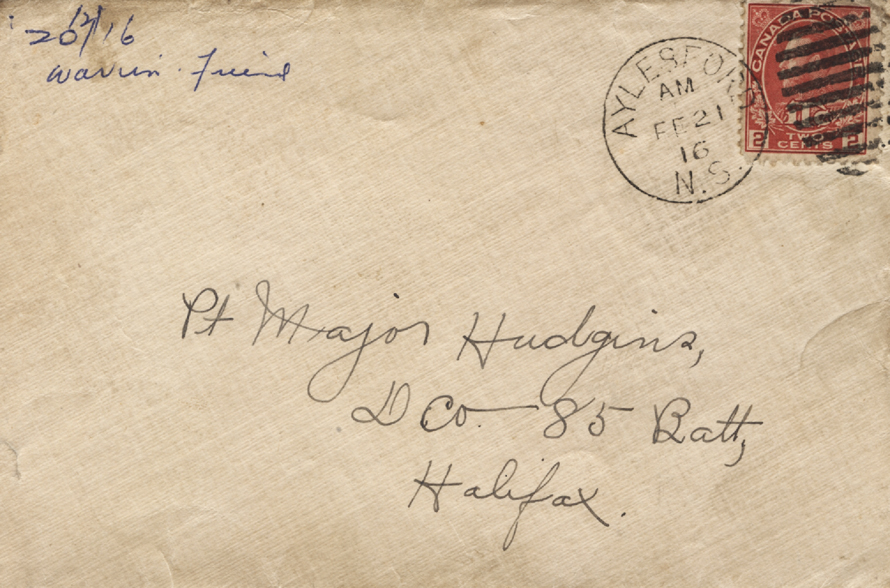 20/2/16
Warren Friend
CANADA POSTAGE
2 TWO CENTS 2
AYLESFORD
AM
FE 21
16
N.S.
Pt Major Hudgins,
D Co. — 85 Batt,
Halifax.